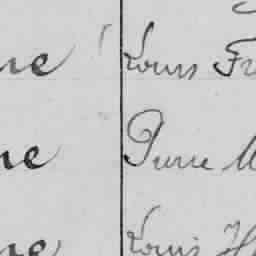 ne Louis Fr
ne Pierre M
ne Louis H